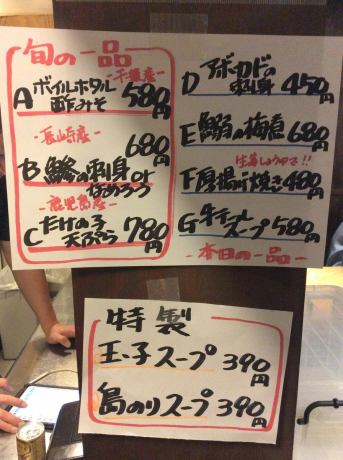 旬の一品
-千葉産-
Aボイルホタル
酢みそ 580円
-長崎産-
680円
B鯵の刺身or
なめろう
-鹿児島産-
Cたけの子
天ぷら 780円
Dアボカドの
刺身 450円
E鰯の梅煮 680円
生姜しょうゆで!!
F厚揚げ焼き 480円
G牛テールスープ 580円
-本日の一品-
特製
玉子スープ 390円
島のりスープ 390円